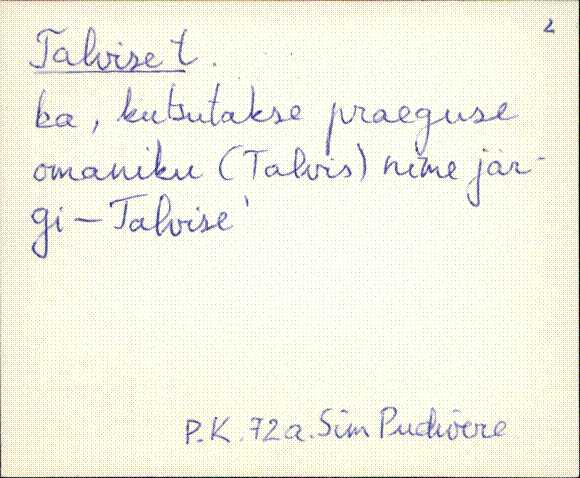 2
Talvise t.
ka, kutsutakse praeguse
omaniku (Talvis) nime jär-
gi – Talvise'
P.K. 72a. Sim Pudivere